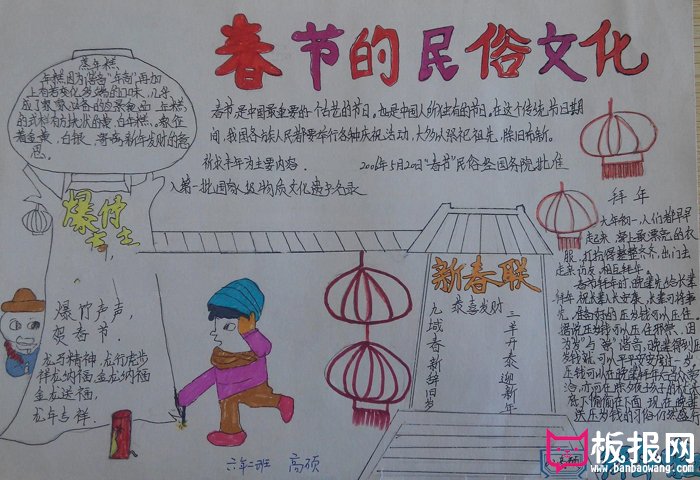 春节的民俗文化
蒸年糕
年糕因为谐音"年高"再加
上有着变化多端的口味，几乎
成了家家必备的应景食品，年糕
的式样有方块状的黄、白年糕，象征
着黄金、白银，寄寓新年发财的意
思。
春节是中国最重要的一个古老的节日，也是中国人所独有的节日。在这个传统节日期
间，我国各族人民都要举行各种庆祝活动，大多以祭祀祖先、除旧布新、
祈求丰年为主要内容。 2006年5月20日"春节"民俗经国务院批准
入第一批国家级物质文化遗产名录
爆竹
爆竹声声
贺春节.
龙马精神，龙行虎步
祥龙纳福，金龙纳福
金龙送福，
龙年吉祥.
新春联
恭喜发财
三羊开泰迎新年
九域春新辞旧岁
拜年
大年初一，人们都早早
起来，穿上最漂亮的衣
服，打扮得整整齐齐，出门去
走亲访友，相互拜年
春节拜年时，晚辈要先给长辈
拜年，祝长辈人长寿安康，长辈可将事
先准备好的压岁钱
六年二班 高硕
板报网
www.banbaowang.com